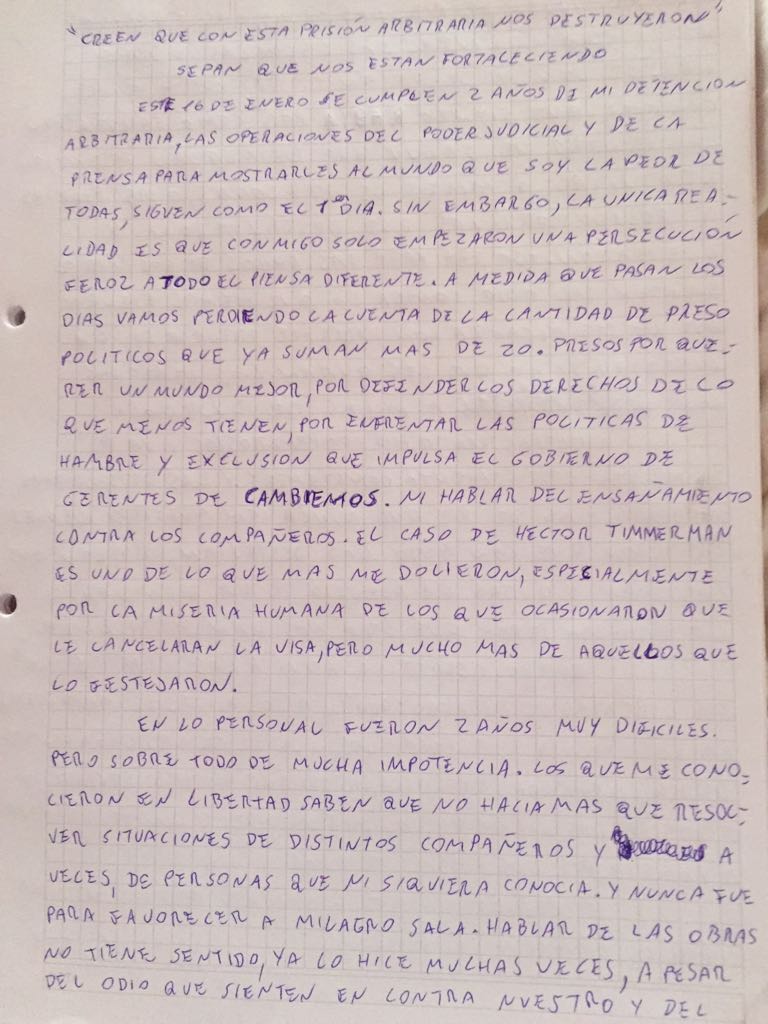 "CREEN QUE CON ESTA PRISIÓN ARBITRARIA NOS DESTRUYERON"
SEPAN QUE NOS ESTAN FORTALECIENDO
ESTE 16 DE ENERO SE CUMPLEN 2 AÑOS DE MI DETENCION
ARBITRARIA, LAS OPERACIONES DEL PODER JUDICIAL Y DE LA
PRENSA PARA MOSTRARLES AL MUNDO QUE SOY LA PEOR DE
TODAS, SIGUEN COMO EL 1ER DIA. SIN EMBARGO, LA UNICA REA-
LIDAD ES QUE CONMIGO SOLO EMPEZARON UNA PERSECUCIÓN
FEROZ A TODO EL PIENSA DIFERENTE. A MEDIDA QUE PASAN LOS
DIAS VAMOS PERDIENDO LA CUENTA DE LA CANTIDAD DE PRESO
POLITICOS QUE YA SUMAN MAS DE 20. PRESOS POR QUE-
RER UN MUNDO MEJOR, POR DEFENDER LOS DERECHOS DE LO
QUE MENOS TIENEN, POR ENFRENTAR LAS POLITICAS DE
HAMBRE Y EXCLUSION QUE IMPULSA EL GOBIERNO DE
GERENTES DE CAMBIEMOS. NI HABLAR DEL ENSAÑAMIENTO
CONTRA LOS COMPAÑEROS. EL CASO DE HECTOR TIMMERMAN
ES UNO DE LO QUE MAS ME DOLIERON, ESPECIALMENTE
POR LA MISERIA HUMANA DE LOS QUE OCASIONARON QUE
LE CANCELARAN LA VISA, PERO MUCHO MAS DE AQUELLOS QUE
LO FESTEJARON.
EN LO PERSONAL FUERON 2 AÑOS MUY DIFICILES.
PERO SOBRE TODO DE MUCHA IMPOTENCIA. LOS QUE ME CONO-
CIERON EN LIBERTAD SABEN QUE NO HACIA MAS QUE RESOL-
VER SITUACIONES DE DISTINTOS COMPAÑEROS Y A
VECES, DE PERSONAS QUE NI SIQUIERA CONOCIA. Y NUNCA FUE
PARA FAVORECER A MILAGRO SALA. HABLAR DE LAS OBRAS
NO TIENE SENTIDO, YA LO HICE MUCHAS VECES, A PESAR
DEL ODIO QUE SIENTEN EN CONTRA NUESTRO Y DEL